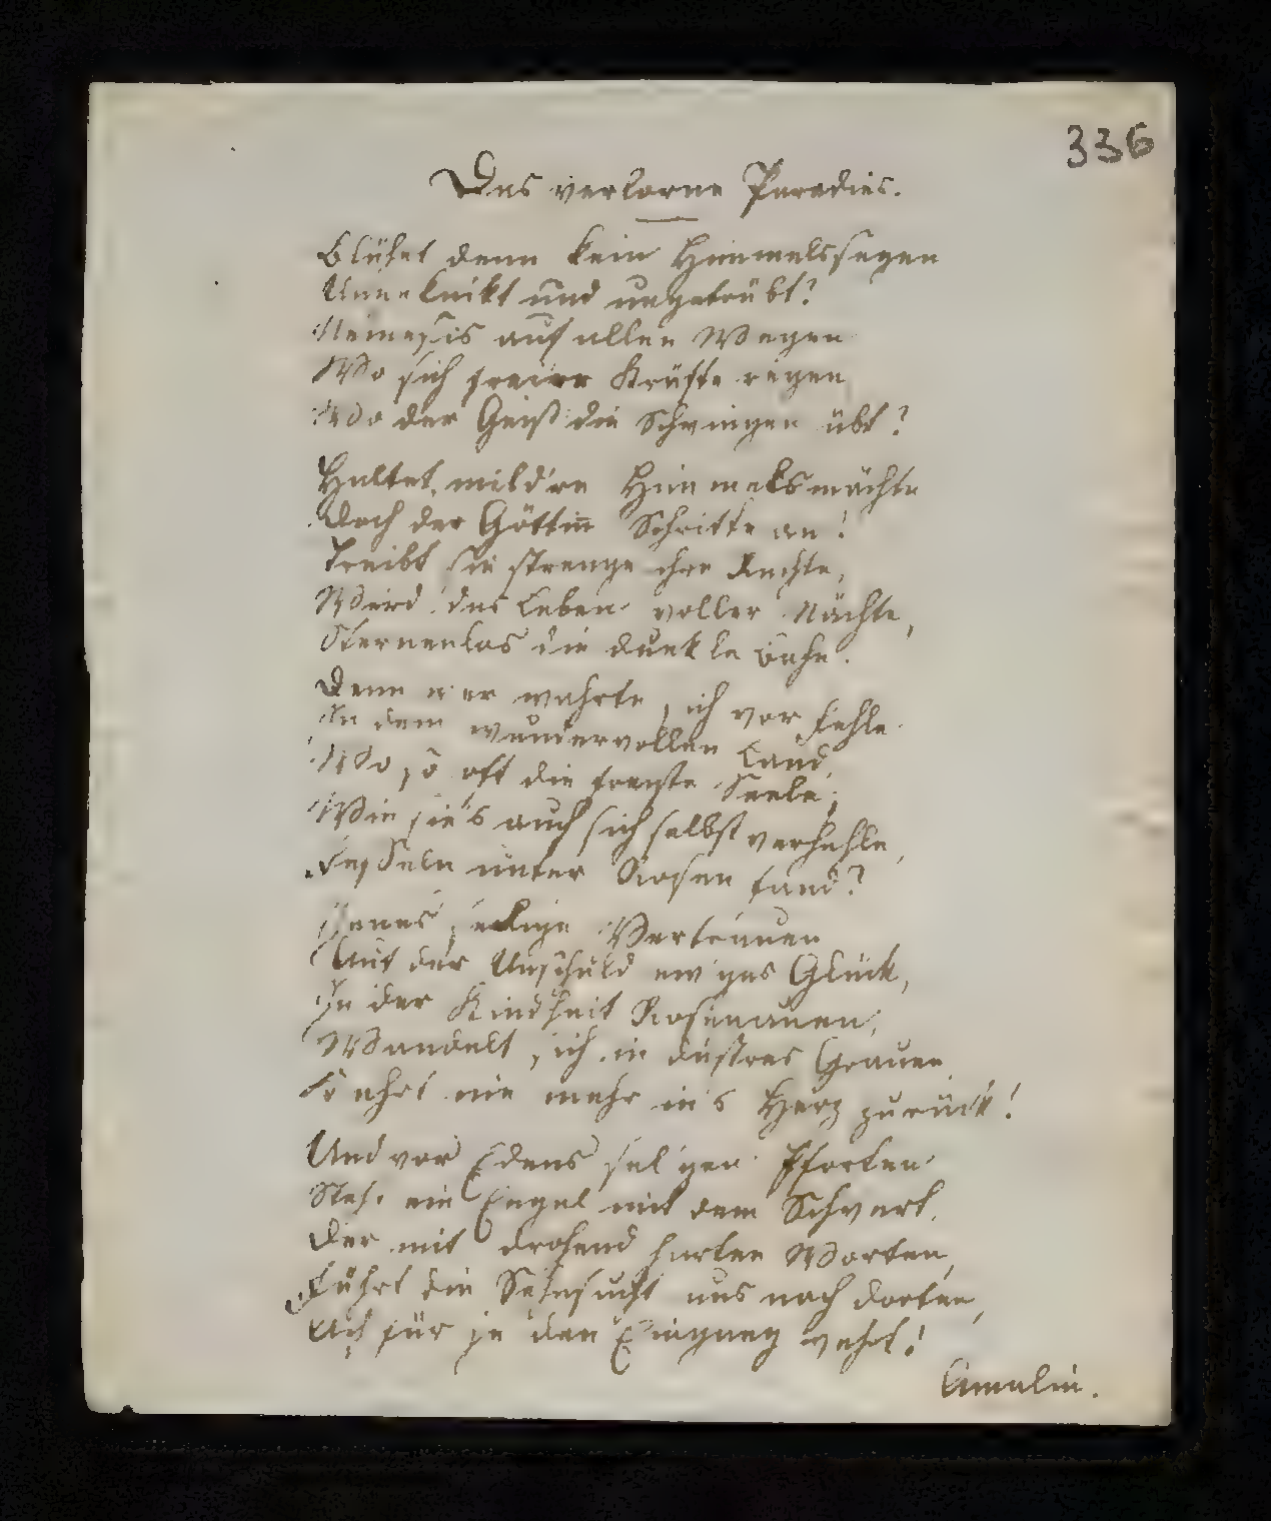 336
Das verlorne Paradies.
Blühet denn kein Himmelssegen
Ungeknikt und ungetrübt?
Nemesis auf allen Wegen
Wo sich freier Kräfte regen
Wo der Geist die Schwingen übt?
Haltet, mild're Himmelsmächte
Doch der Göttin Schritte an!
Treibt sie strenge ihre Rechte,
Wird das Leben voller Nächte,
Sternenlos die dunkle Bahn.
Denn wer wahrte sich vor Fehle
In dem wundervollen Land,
Wo so oft die freyste Seele,
Wie sie's auch sich selbst verhehle,
Fesseln unter Rosen fand?
Jenes seelige Vertrauen
Auf der Unschuld ewiges Glück,
In der Kindheit Rosenauen,
Wandelt sich in düstres Grauen
Kehrt nie mehr in's Herz zurück!
Und vor Edens sel'gen Pforten
Steht ein Engel mit dem Schwert,
Der mit drohend harten Worten,
Führt die Sehnsucht uns nach dorten,
Ach für je den Eingang wehrt!
Amalie.